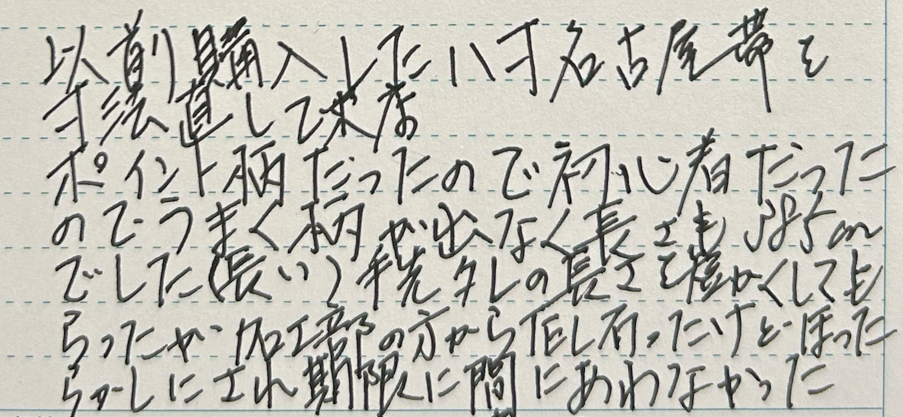 以前購入した八寸名古屋帯を
寸法直して来店
ポイント柄だったので初心者だった
のでうまく柄が出なく長さも385cm
でした(長い)手先タレの長さを短かくしても
らったが加工部の方から
らかしにされ期限に間にあわなかった